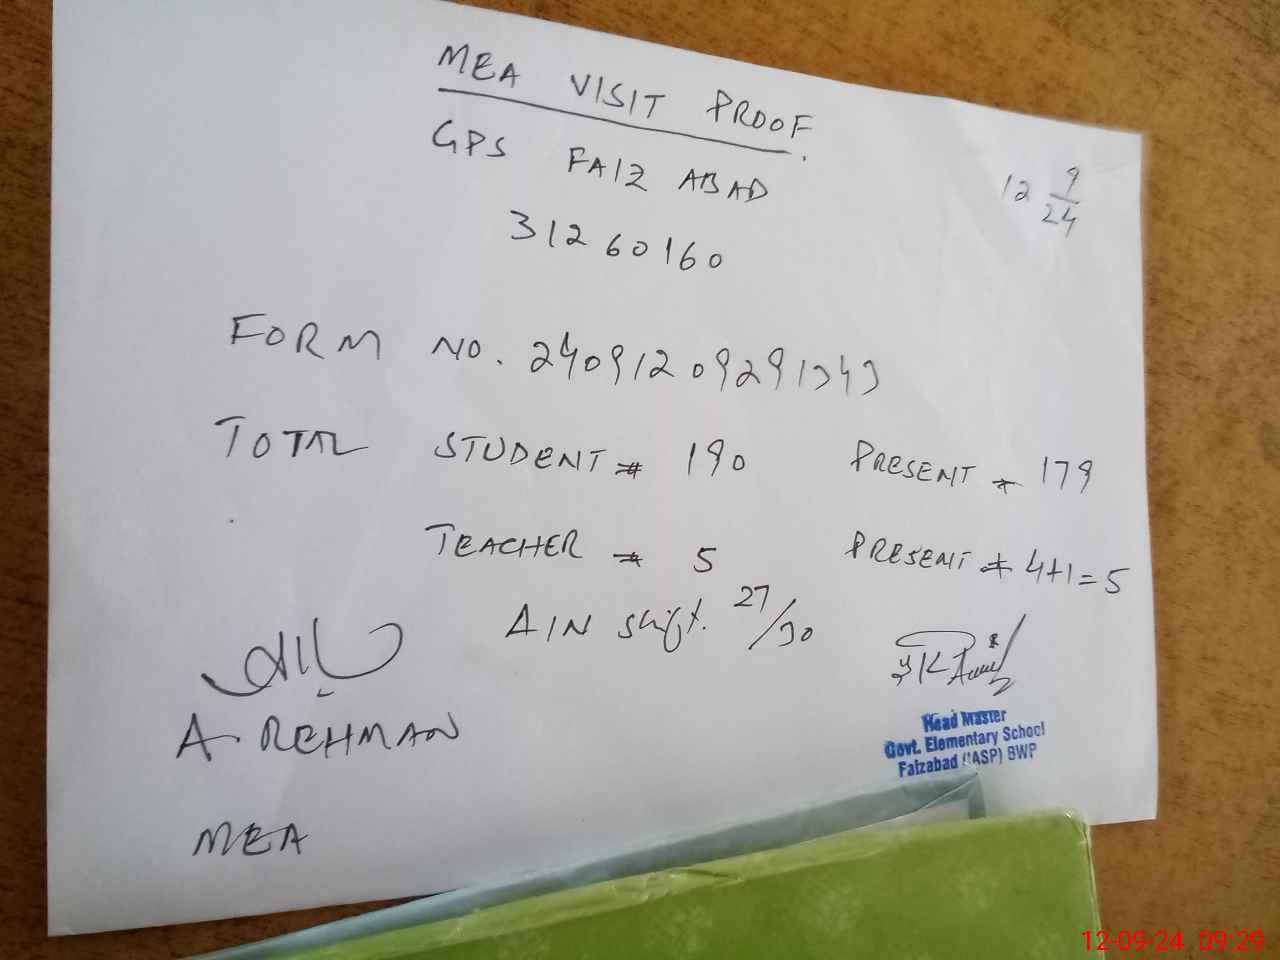 MEA VISIT PROOF.
GPS FAIZ ABAD
12 9/24
31260160
FORM NO. 24091209291343
TOTAL STUDENT 190 PRESENT 179
TEACHER 5 PRESENT 4+1=5
AIN shift. 27/30
A. REHMAN
MEA
Head Master
Govt. Elementary School
Faizabad (IASP) BWP
12-09-24 09:29